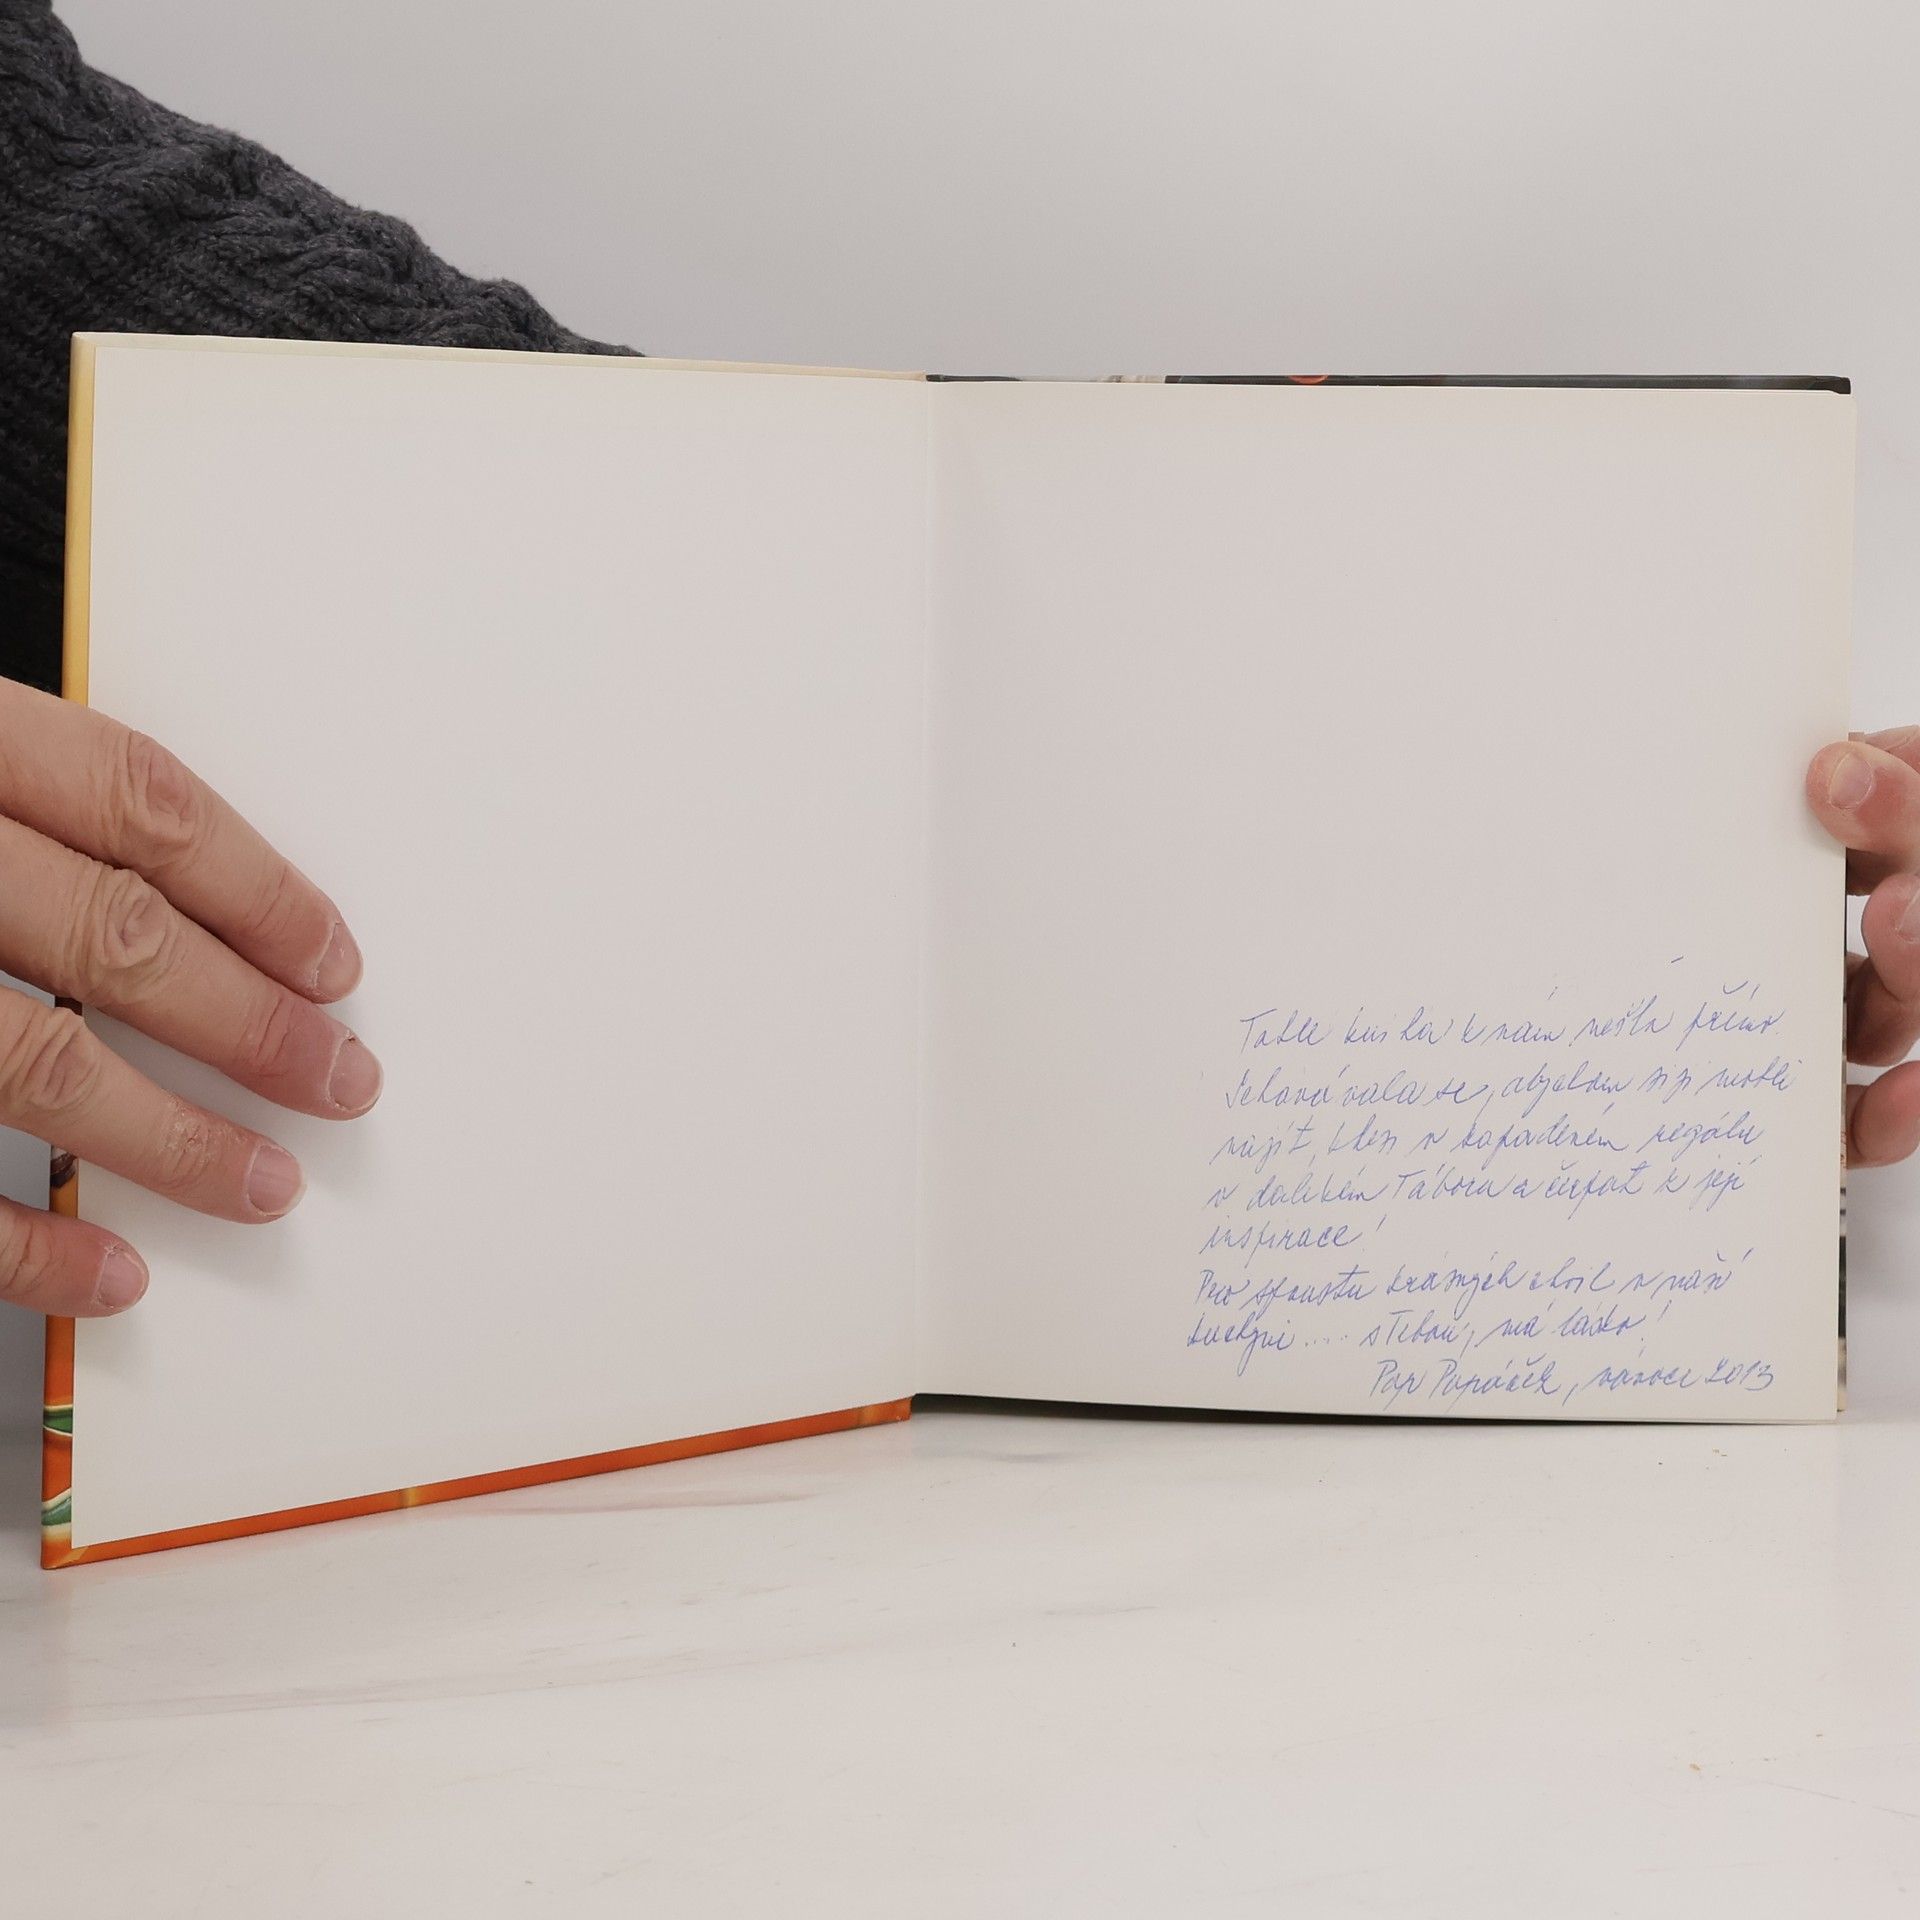 Tahle knížka k nám nešla přímo.
Schovávala se, abychom si ji mohli
najít, kdesi v zapadeném regálu
v dalekém Táboru a čerpat z její
inspirace!
Pro spoustu krásných chvil v naší
kuchyni .... s Tebou, má lásko!
Pap Papáček, vánoce 2013